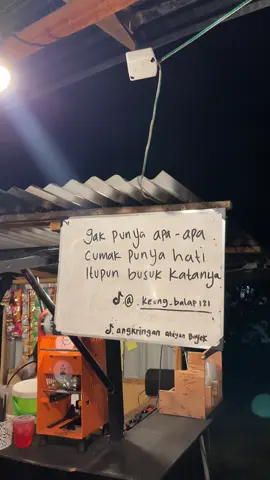 gak punya apa-apa
cumak punya hati
Itupun busuk katanya
@. keung_balap121
angkringan